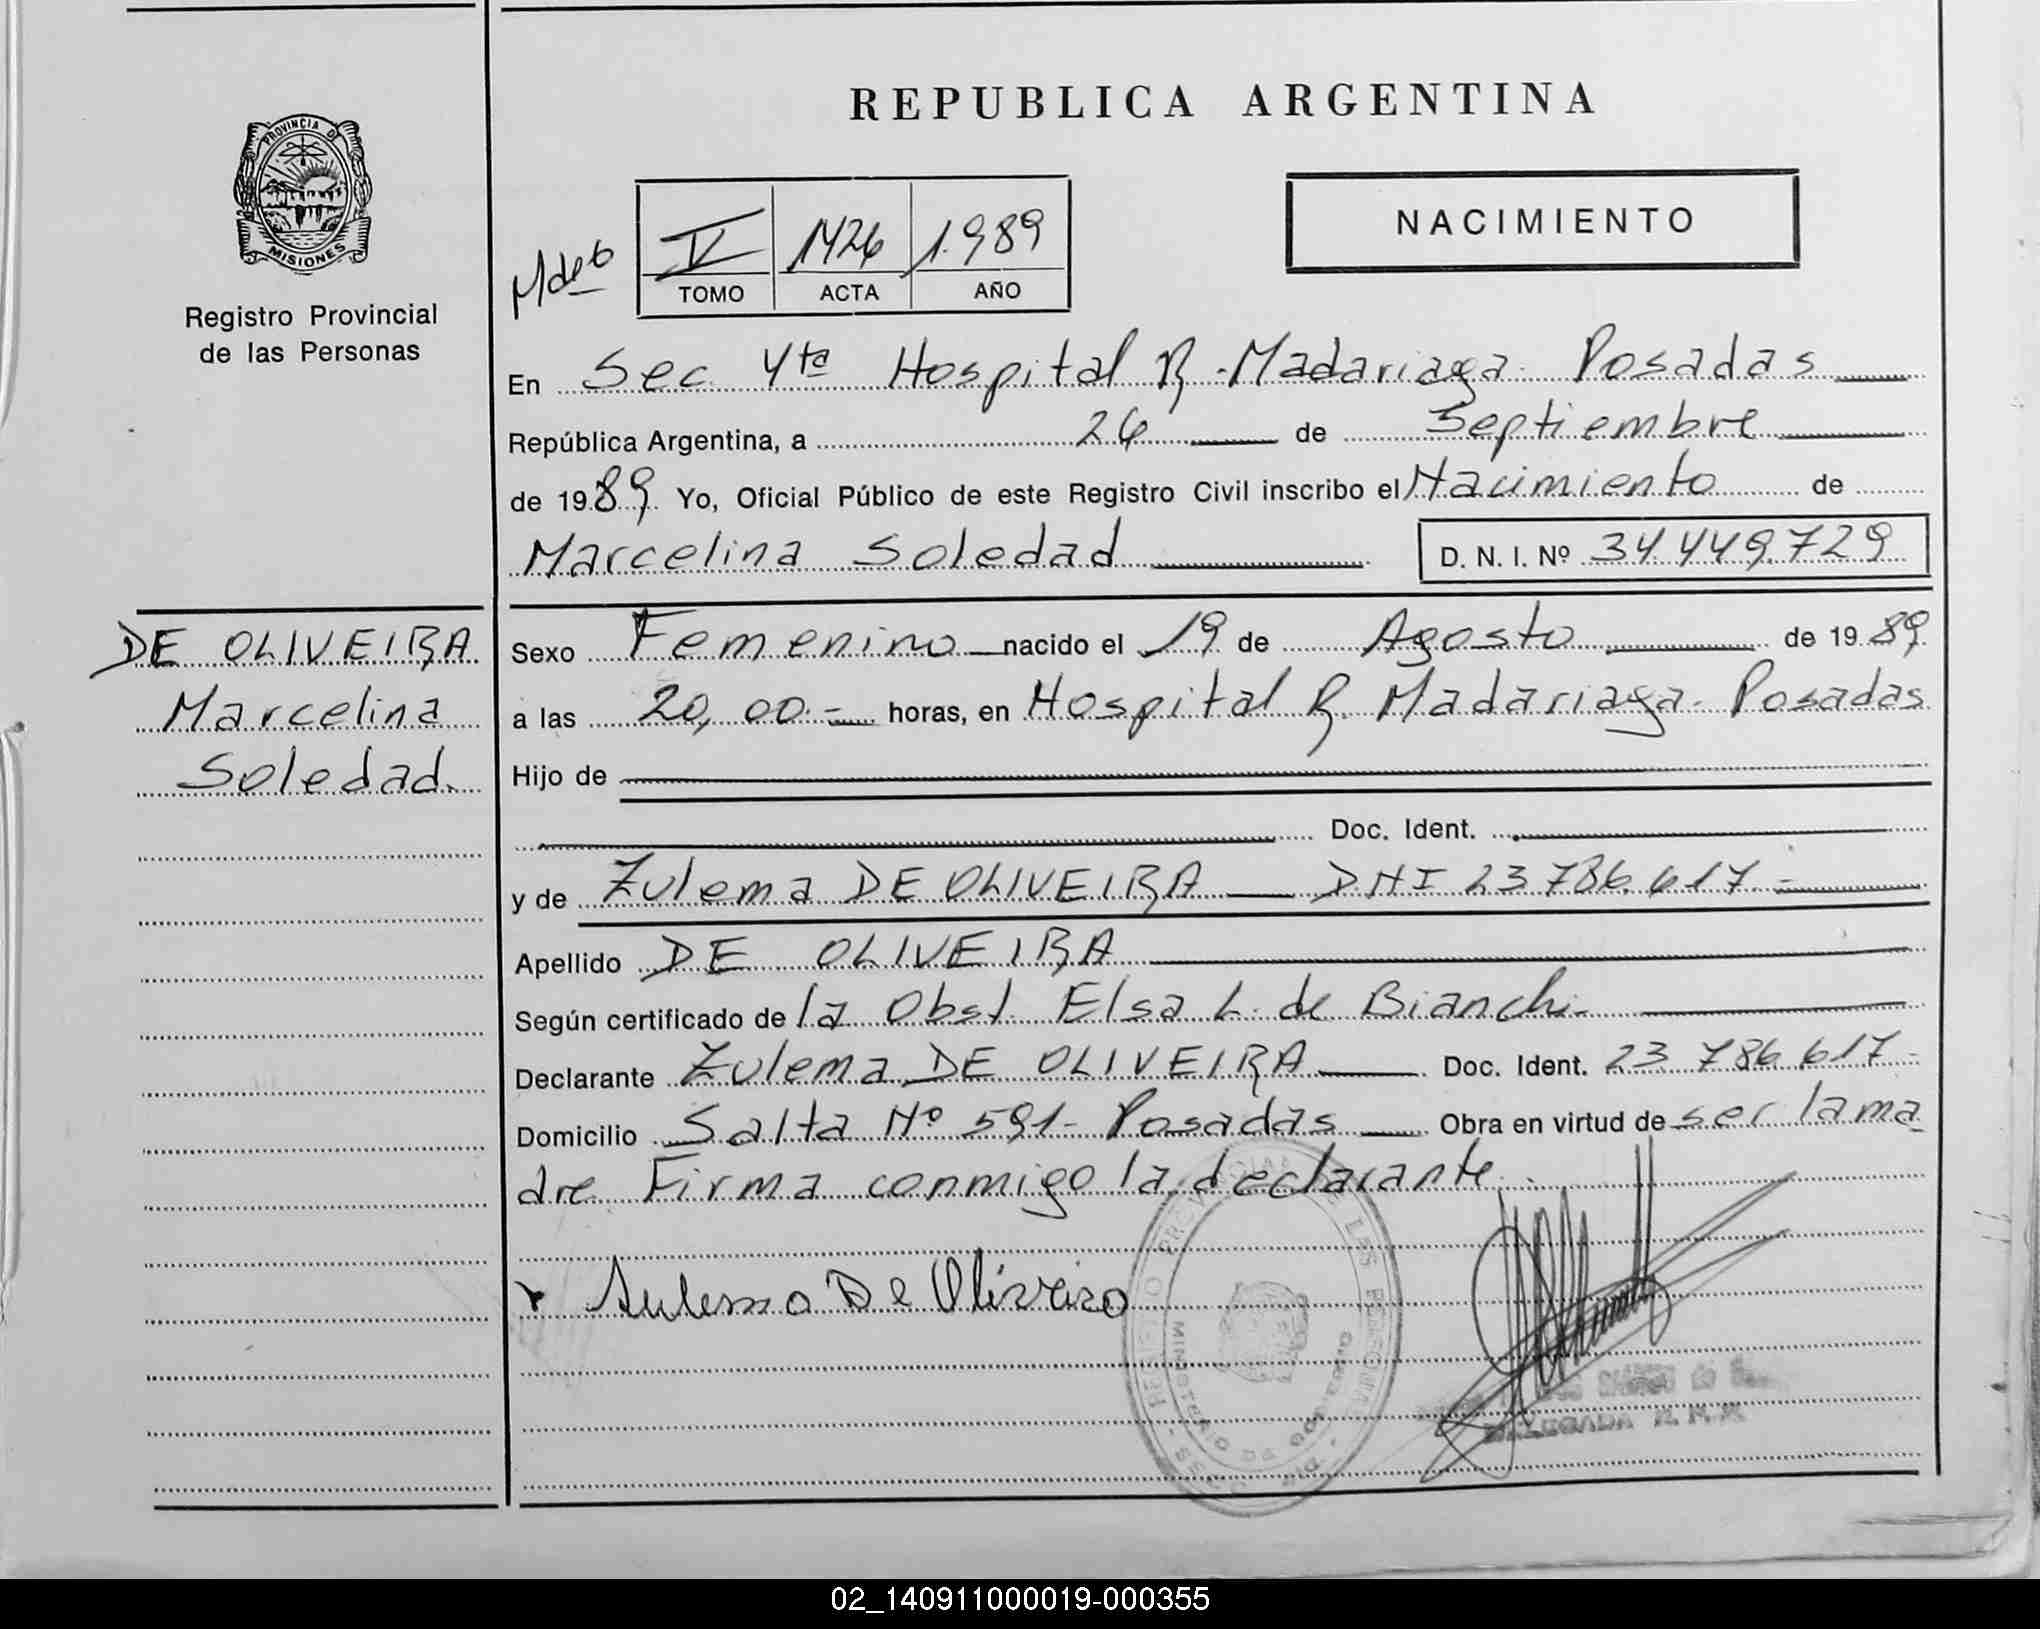 REPUBLICA ARGENTINA
PROVINCIA DE
MISIONES
Registro Provincial
de las Personas
NACIMIENTO
V 1426 1.989
TOMO ACTA AÑO
En Sec 4ta Hospital R. Madariaga Posadas
República Argentina, a 26 de Septiembre
de 1989 Yo, Oficial Público de este Registro Civil inscribo el Nacimiento de
Marcelina Soledad D. N. I. Nº 34.449.729
DE OLIVEIRA
Marcelina
Soledad.
Sexo Femenino nacido el 19 de Agosto de 1989
a las 20,00.- horas, en Hospital R. Madariaga- Posadas
Hijo de
Doc. Ident.
y de Zulema DE OLIVEIRA DNI 23.786.617-
Apellido DE OLIVEIRA
Según certificado de la Obst. Elsa L. de Bianchi-
Declarante Zulema DE OLIVEIRA Doc. Ident. 23.786.617-
Domicilio Salta Nº 591- Posadas Obra en virtud de ser la ma
dre. Firma conmigo la declarante.
Zulema De Oliveira
MINISTERIO DE GOBIERNO
DELEGADA
02_140911000019-000355